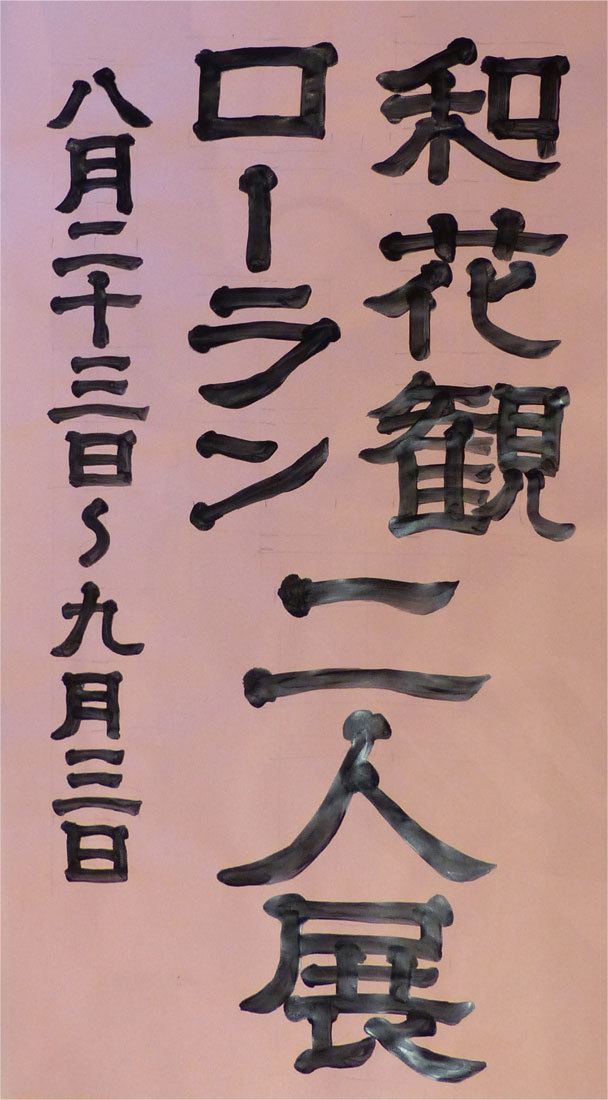 和花観
ローラン
二人展
八月二十三日～九月三日